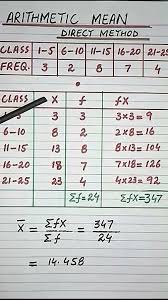 ARITHMETIC MEAN
DIRECT METHOD
CLASS 1-5 6-10 11-15 16-20 21-25
FREQ. 3 2 8 7 4
CLASS X f fX
3 3 3×3= 9
6-10 8 2 2×8= 16
11-15 13 8 8×13= 104
16-20 18 7 7×18= 126
21-25 23 4 4×23= 92
Σf=24 ΣfX=347
X̄ = ΣfX / Σf = 347 / 24
= 14.458